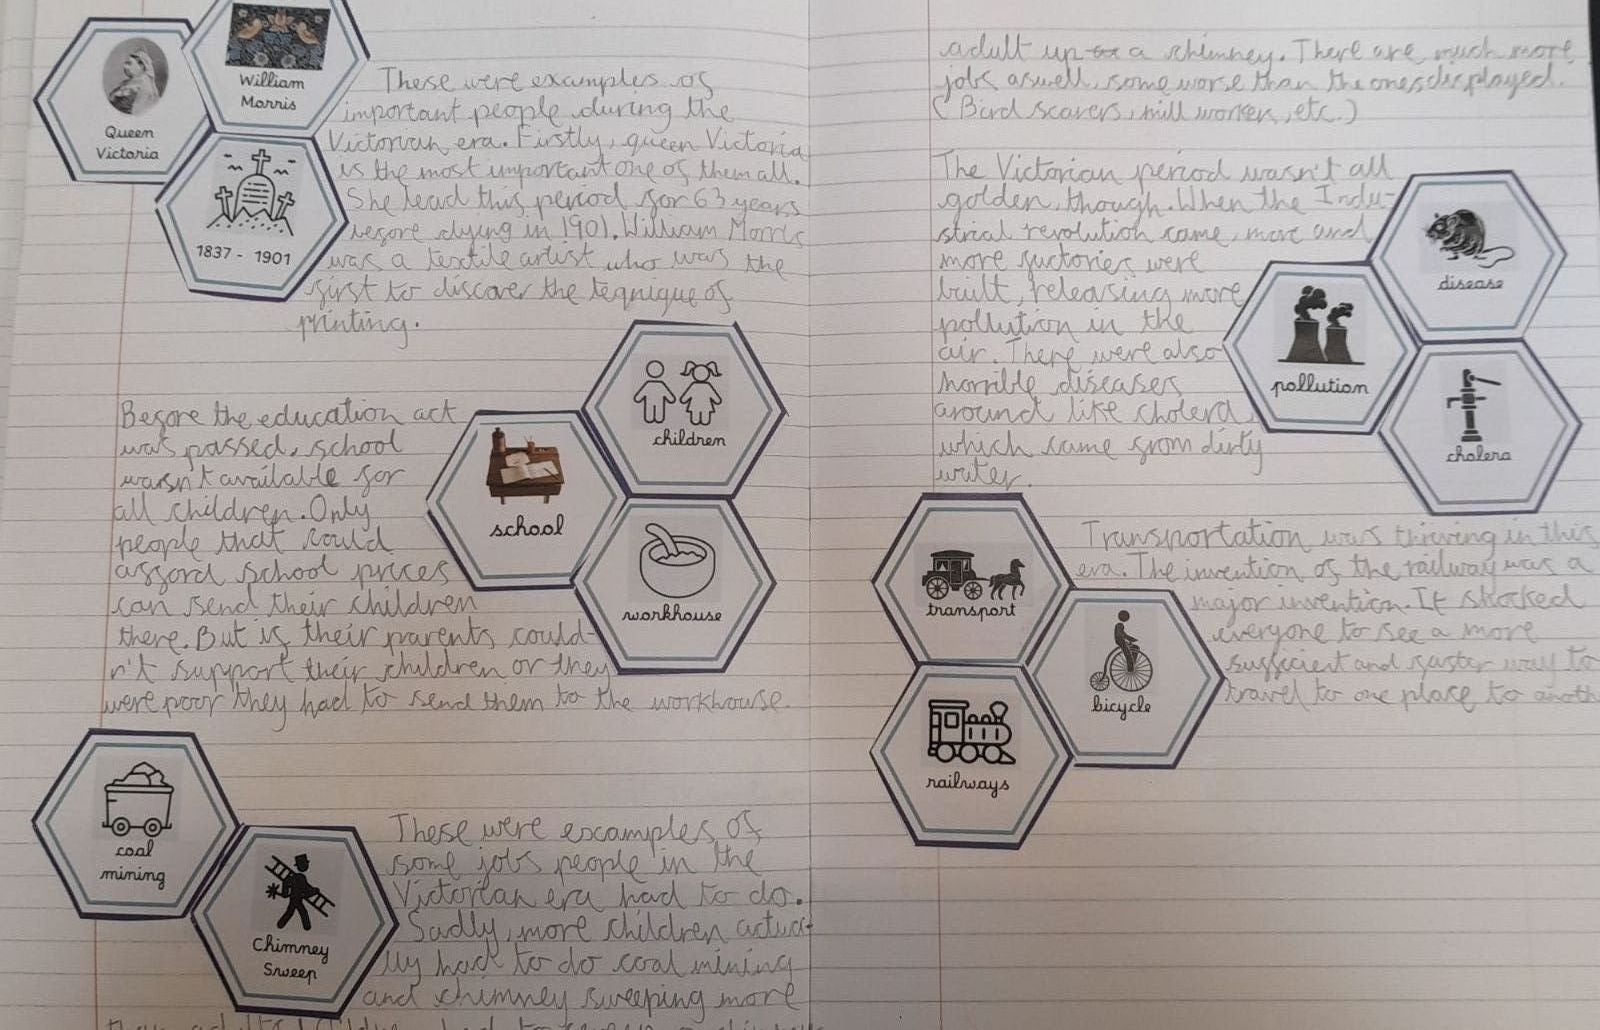 Queen
Victoria
William
Morris
1837 - 1901
These were examples of
important people during the
Victorian era. Firstly, queen Victoria
is the most important one of them all.
She lead this period for 63 years
before dying in 1901. William Morris
was a textile artist who was the
first to discover the teqnique of
printing.
children
school
workhouse
Before the education act
was passed, school
wasn't available for
all children. Only
people that could
afford school prices
can send their children
there. But if their parents could-
n't support their children or they
were poor they had to send them to the workhouse.
coal
mining
Chimney
Sweep
These were examples of
some jobs people in the
Victorian era had to do.
Sadly, more children actua-
lly had to do coal mining
and chimney sweeping more
adult up a chimney. There are much more
jobs aswell, some worse than the ones displayed.
(Bird scarers, mill workers, etc.)
The Victorian period wasn't all
golden, though. When the Indu-
strial revolution came, more and
more factories were
built, releasing more
pollution in the
air. There were also
horrible diseases
around like cholera
which came from dirty
water.
disease
pollution
cholera
transport
bicycle
railways
Transportation was thriving in this
era. The invention of the railway was a
major invention. It shocked
everyone to see a more
sufficient and faster way to
travel to one place to anoth